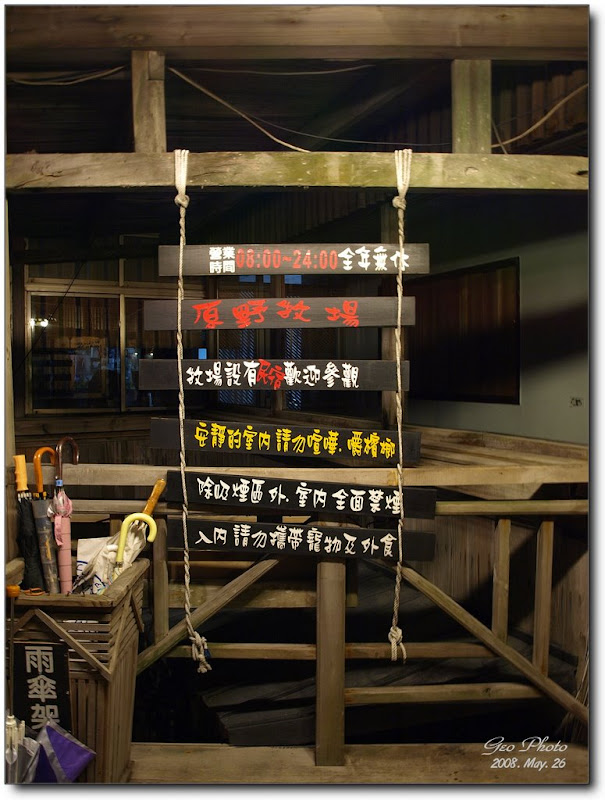 營業時間 08:00~24:00 全年無休
原野牧場
牧場設有民宿歡迎參觀
安靜的室內請勿喧嘩.嚼檳榔
除吸煙區外.室內全面禁煙
入內請勿攜帶寵物及外食
雨傘架
Geo Photo
2008. May. 26